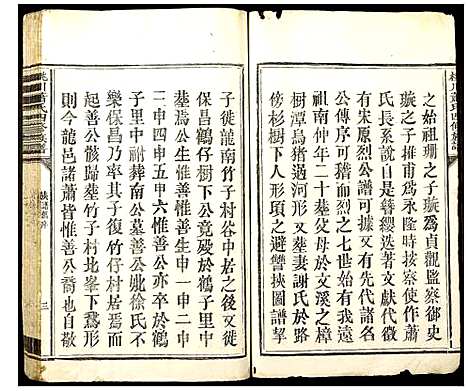 桃川蕭氏四修族譜
之始祖珊之子璇爲貞觀監察御史
璇之子推甫爲永隆時按察使作蕭
氏族譜自是簪纓迭著文獻代徵
有宋原烈公譜可據又有先代諸名
公傳序可考善烈之七世始有我遠
祖南年二十葬父母於文溪之樟
樹潭烏猪過河形又葬妻謝氏於路
傍杉樹下人形頂之避讐挾圖譜挈
子徙龍南竹子村谷中者之後又徙
保昌鶴仔樹下公竟歿於鶴子里中
葬焉公生惟善惟善生申一申二申
三申四申五申六惟善公亦卒於鶴
子里中祔葬南公墓善公妣徐氏不
樂保昌乃率其子復竹仔村居焉而
善公骸歸葬竹子村北峯下鵞形
則今龍邑諸蕭皆惟善公裔也自敬
桃川蕭氏四修族譜
三